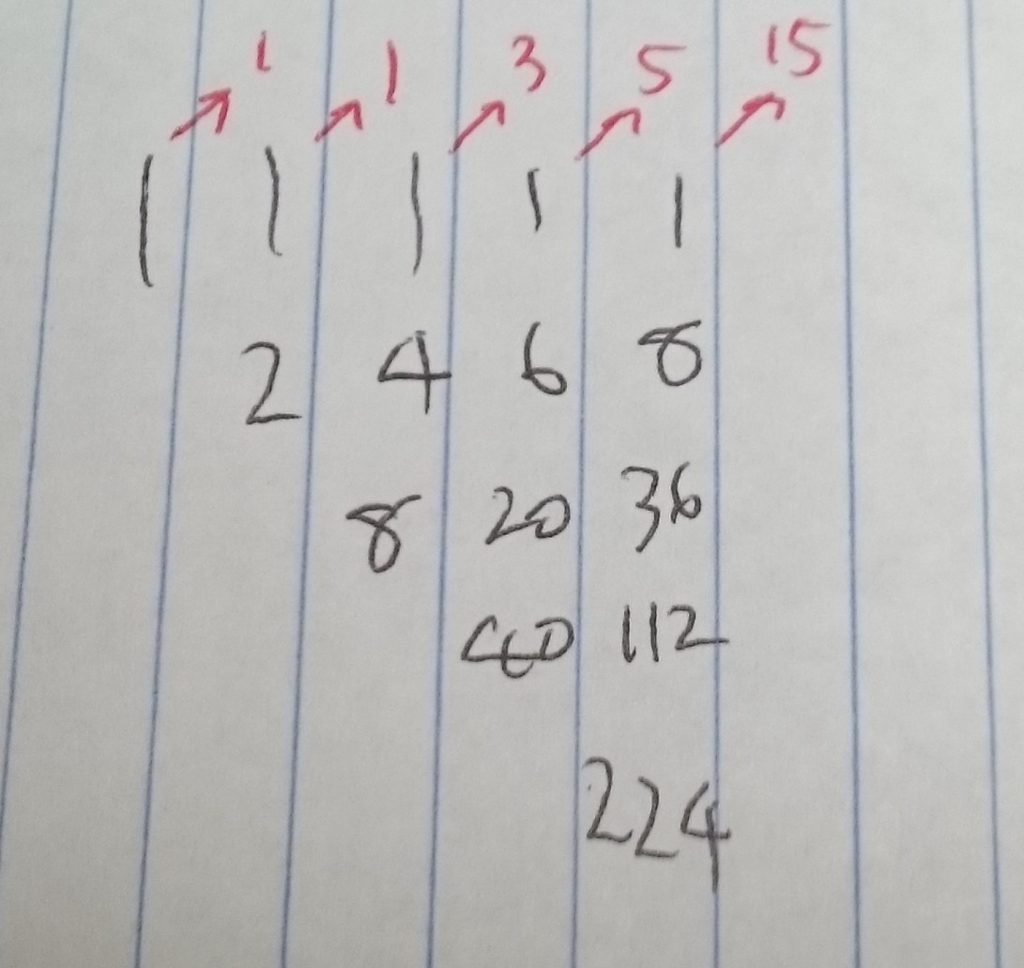 1 1 3 5 15
1 1 1 1 1
2 4 6 8
8 20 36
40 112
224